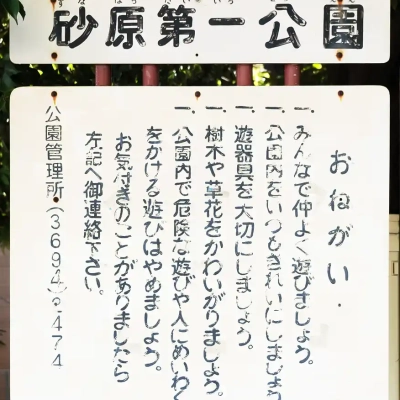 砂原第一公園
おねがい.
一、みんなで仲よく遊びましょう。
一、公園内をいつもきれいにしましょう
一、遊器具を大切にしましょう。
一、樹木や草花をかわいがりましょう。
一、公園内で危険な遊びや人にめいわく
をかける遊びはやめましょう。
お気付きのことがありましたら
左記へ御連絡下さい。
公園管理所(3694-2474